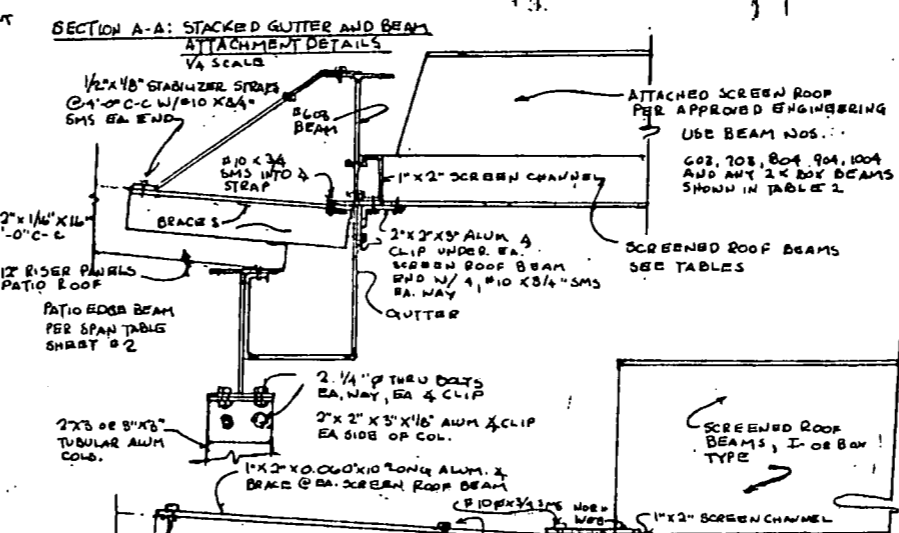 SECTION A-A: STACKED GUTTER AND BEAM
ATTACHMENT DETAILS
1/4 SCALE
1/2" x 1/8" STABILIZER STRAPS
@ 4'-0" C-C W/ #10 x 3/4"
SMS EA END
#608
BEAM
ATTACHED SCREEN ROOF
PER APPROVED ENGINEERING
USE BEAM NOS.
603, 703, 804, 904, 1004
AND ANY 2 x BOX BEAMS
SHOWN IN TABLE 2
#10 x 3/4
SMS INTO ∠
STRAP
1" x 2" SCREEN CHANNEL
BRACES
2" x 1/16" x 16"
'-0" C-C
2" x 2" x 3" ALUM ∠
CLIP UNDER EA.
SCREEN ROOF BEAM
END W/ 4, #10 x 3/4" SMS
EA. WAY
SCREENED ROOF BEAMS
SEE TABLES
12" RISER PANELS
PATIO ROOF
GUTTER
PATIO EDGE BEAM
PER SPAN TABLE
SHEET #2
2. 1/4" Ø THRU BOLTS
EA, WAY, EA ∠ CLIP
2" x 2" x 3" x 1/8" ALUM ∠ CLIP
EA SIDE OF COL.
2x3 OR 3"x3"
TUBULAR ALUM
COLS.
SCREENED ROOF
BEAMS, I- OR BOX
TYPE
1" x 2" x 0.060" x 10" LONG ALUM. ∠
BRACE @ EA. SCREEN ROOF BEAM
#10 Ø x 3/4 SMS
WEB
1" x 2" SCREEN CHANNEL